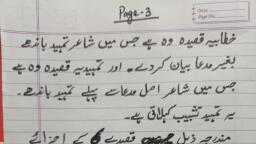 Page-3
Date
Page No.
خطابیہ قصیدہ وہ ہے جس میں شاعر تمہید باندھے
بغیر مدعا بیان کردے۔ اور تمہیدیہ قصیدہ وہ ہے
جس میں شاعر اصل مدعا سے پہلے تمہید باندھے۔
یہ تمہید تشبیب کہلاتی ہے۔
مندرجہ ذیل قصیدے کے اجزائے